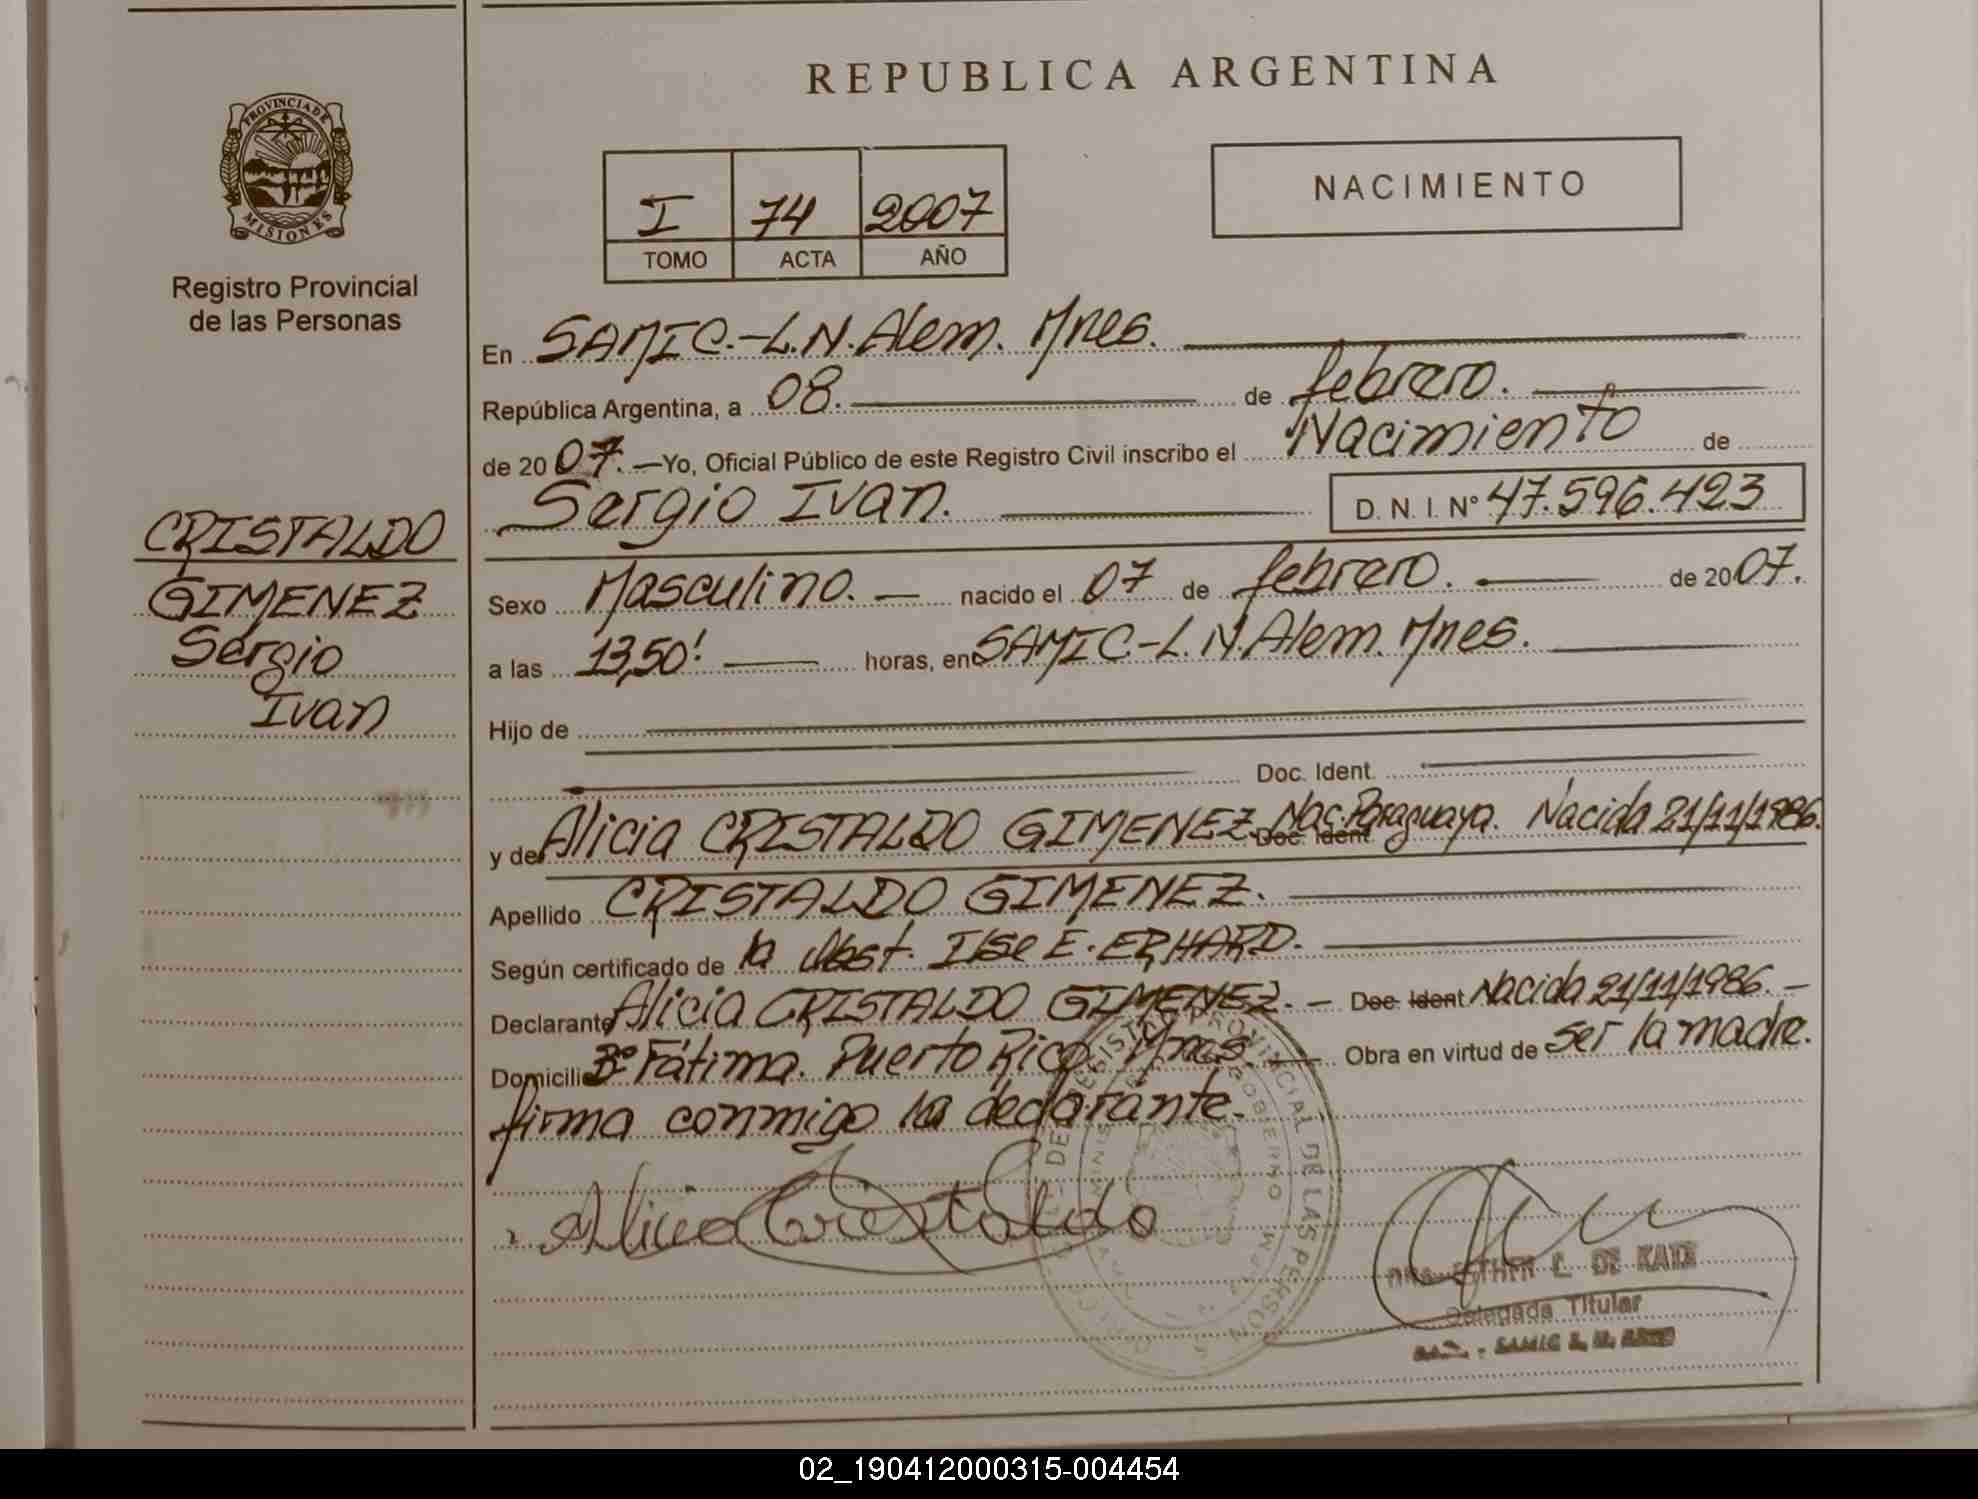 REPUBLICA ARGENTINA
PROVINCIA DE
MISIONES
Registro Provincial
de las Personas
I 74 2007
TOMO ACTA AÑO
NACIMIENTO
En SAMIC.-L.N.Alem. Mnes.
República Argentina, a 08. de febrero.
de 2007. —Yo, Oficial Público de este Registro Civil inscribo el Nacimiento de
Sergio Ivan. D. N. I. Nº 47.596.423
CRISTALDO
GIMENEZ
Sergio
Ivan
Sexo Masculino. — nacido el 07 de febrero. de 2007.
a las 13,50' horas, en SAMIC-L.N.Alem. Mnes.
Hijo de
Doc. Ident.
y de Alicia CRISTALDO GIMENEZ. Doc. Ident. Nac. Paraguaya. Nacida 21/11/1986.
Apellido CRISTALDO GIMENEZ.
Según certificado de la Obst. Ilse E. ERHARD.
Declarante Alicia CRISTALDO GIMENEZ. — Doc. Ident Nacida 21/11/1986. —
Domicilio Bº Fátima. Puerto Rico. Mnes. — Obra en virtud de ser la madre.
firma conmigo la declarante.
Alicia Cristaldo
REGISTRO PROVINCIAL DE LAS PERSONAS
GOBIERNO
ESTHER L. DE
Delegada Titular
SAMIC L. N.
02_190412000315-004454